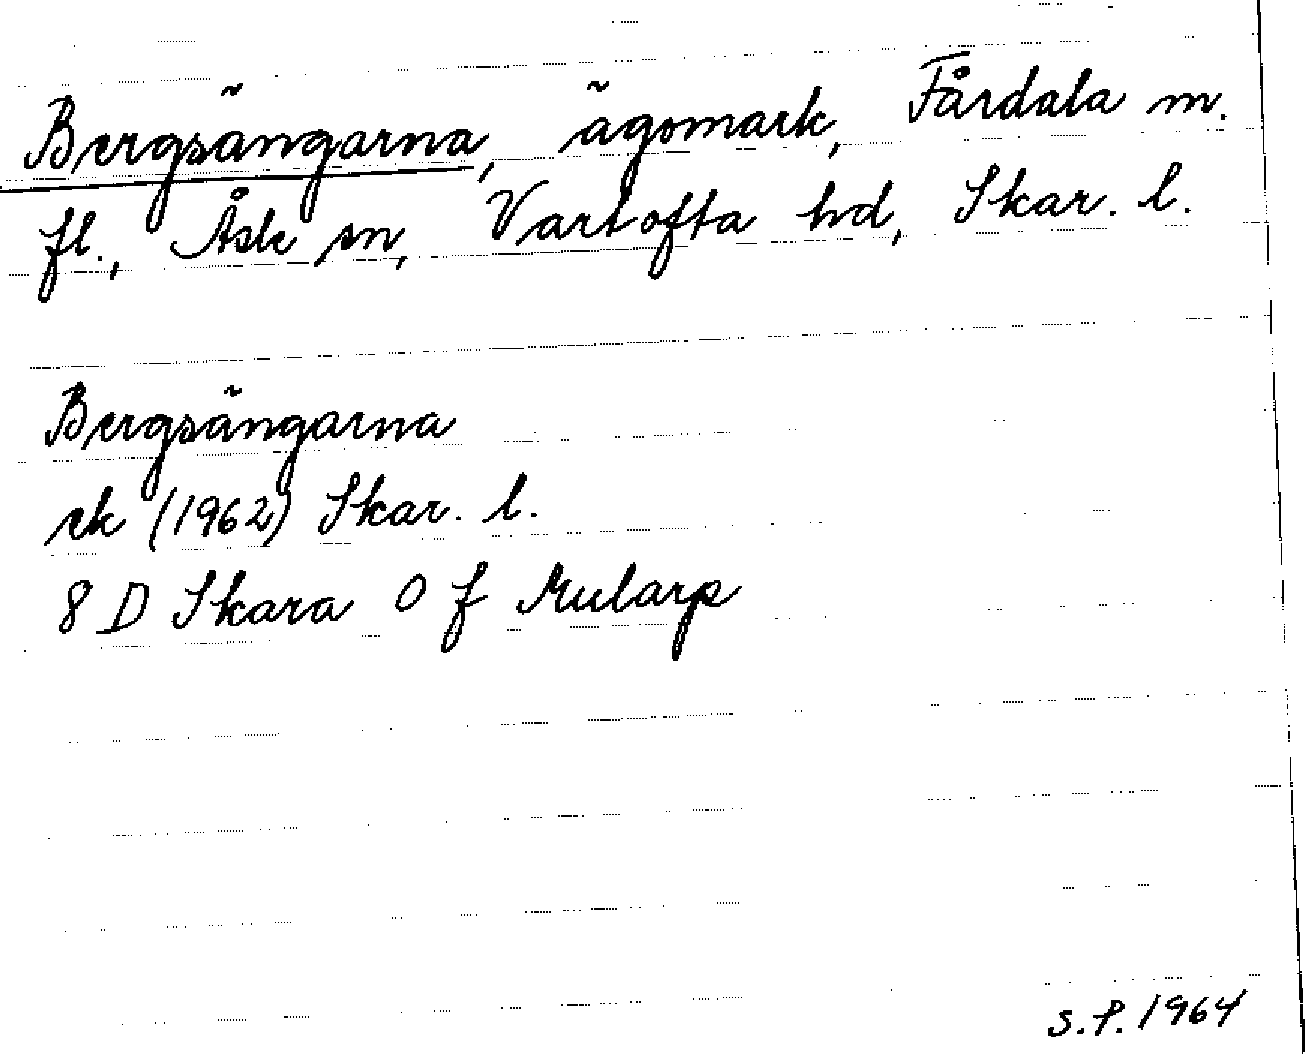 Bergsängarna, ägomark, Fårdala m.
fl., Åsle sn, Vartofta hd, Skar. l.
Bergsängarna
ek (1962) Skar. l.
8 D Skara 0 f Mularp
S.P. 1964